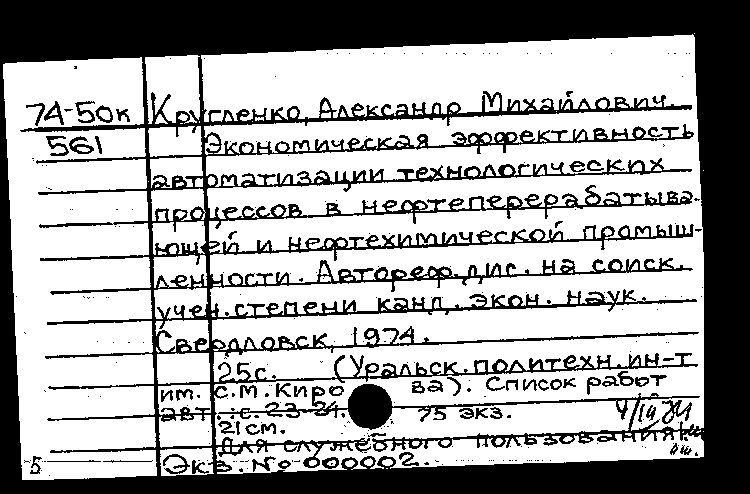 74-50к Кругленко, Александр Михайлович.
561 Экономическая эффективность
автоматизации технологических
процессов в нефтеперерабатыва-
ющей и нефтехимической промыш-
ленности. Автореф. дис. на соиск.
учен. степени канд. экон. наук.
Свердловск, 1974.
25с. (Уральск. политехн. ин-т
им. С.М. Кирова). Список работ
авт.: с. 23-24. 75 экз.
21см.
Для служебного пользования
Б Экз. № 000002.